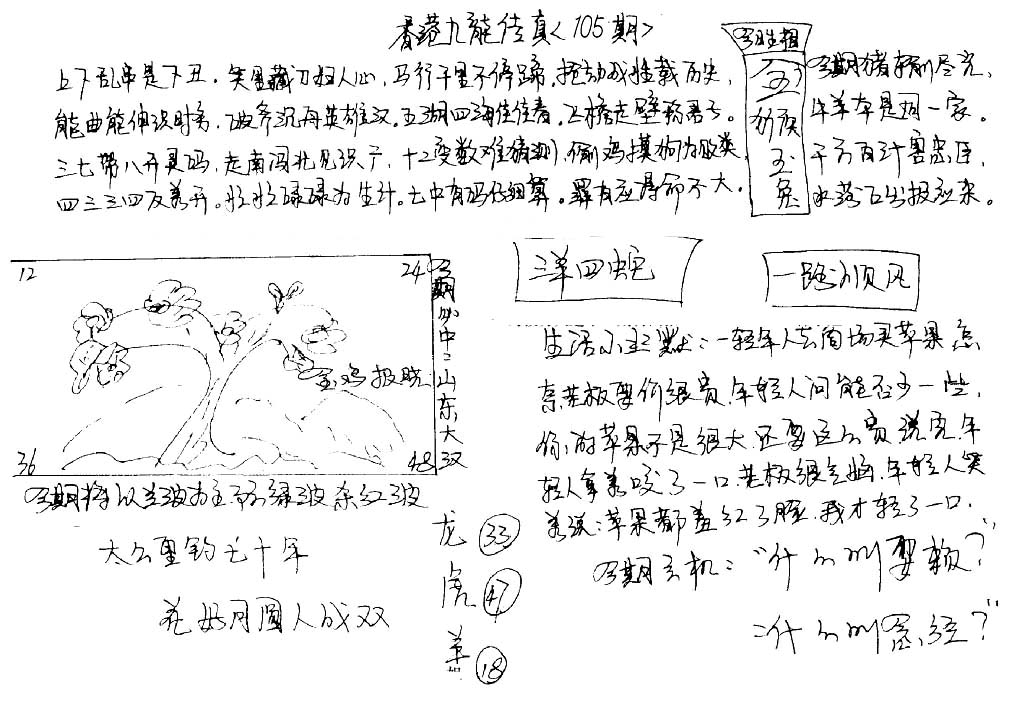 香港九龍传真<105期>
上下乱串是下丑。笑里藏刀妇人心,马行千里不停蹄。抢劫成性载历史,
能曲能伸识时务,破斧沉舟英雄汉。五湖四海佳佳春。飞檐走壁称君子。
三七带八开灵码,走南闯北见识广,十二变数难猜测,偷鸡摸狗为殴类,
四三三四反着开。忙忙碌碌为生计。七中有码仔细算。罪有应得命不大。
今期生相
金
玉
兔
今期猪狗尽完,
牛羊本是同一家。
千方百计害忠臣,
水落石出报应来。
12
24
36
48
金鸡报晓
今期必中:山东大汉
今期特以兰波为主防绿波杂红波
太公垂钓七十年
花好月圆人成双
龙 33
虎 47
羊 18
三羊四蛇
一路顺风
生活小幽默:一轻年人去商场买苹果,怎
奈老板要价很贵,年轻人问能否少一些,
你的苹果不是很大,还要这么贵,说完,年
轻人拿着咬了一口,老板很气恼,年轻人笑
着说:苹果都羞红了脸,我才轻了一口.
今期玄机:“什么叫耍赖?”
:什么叫 经?”